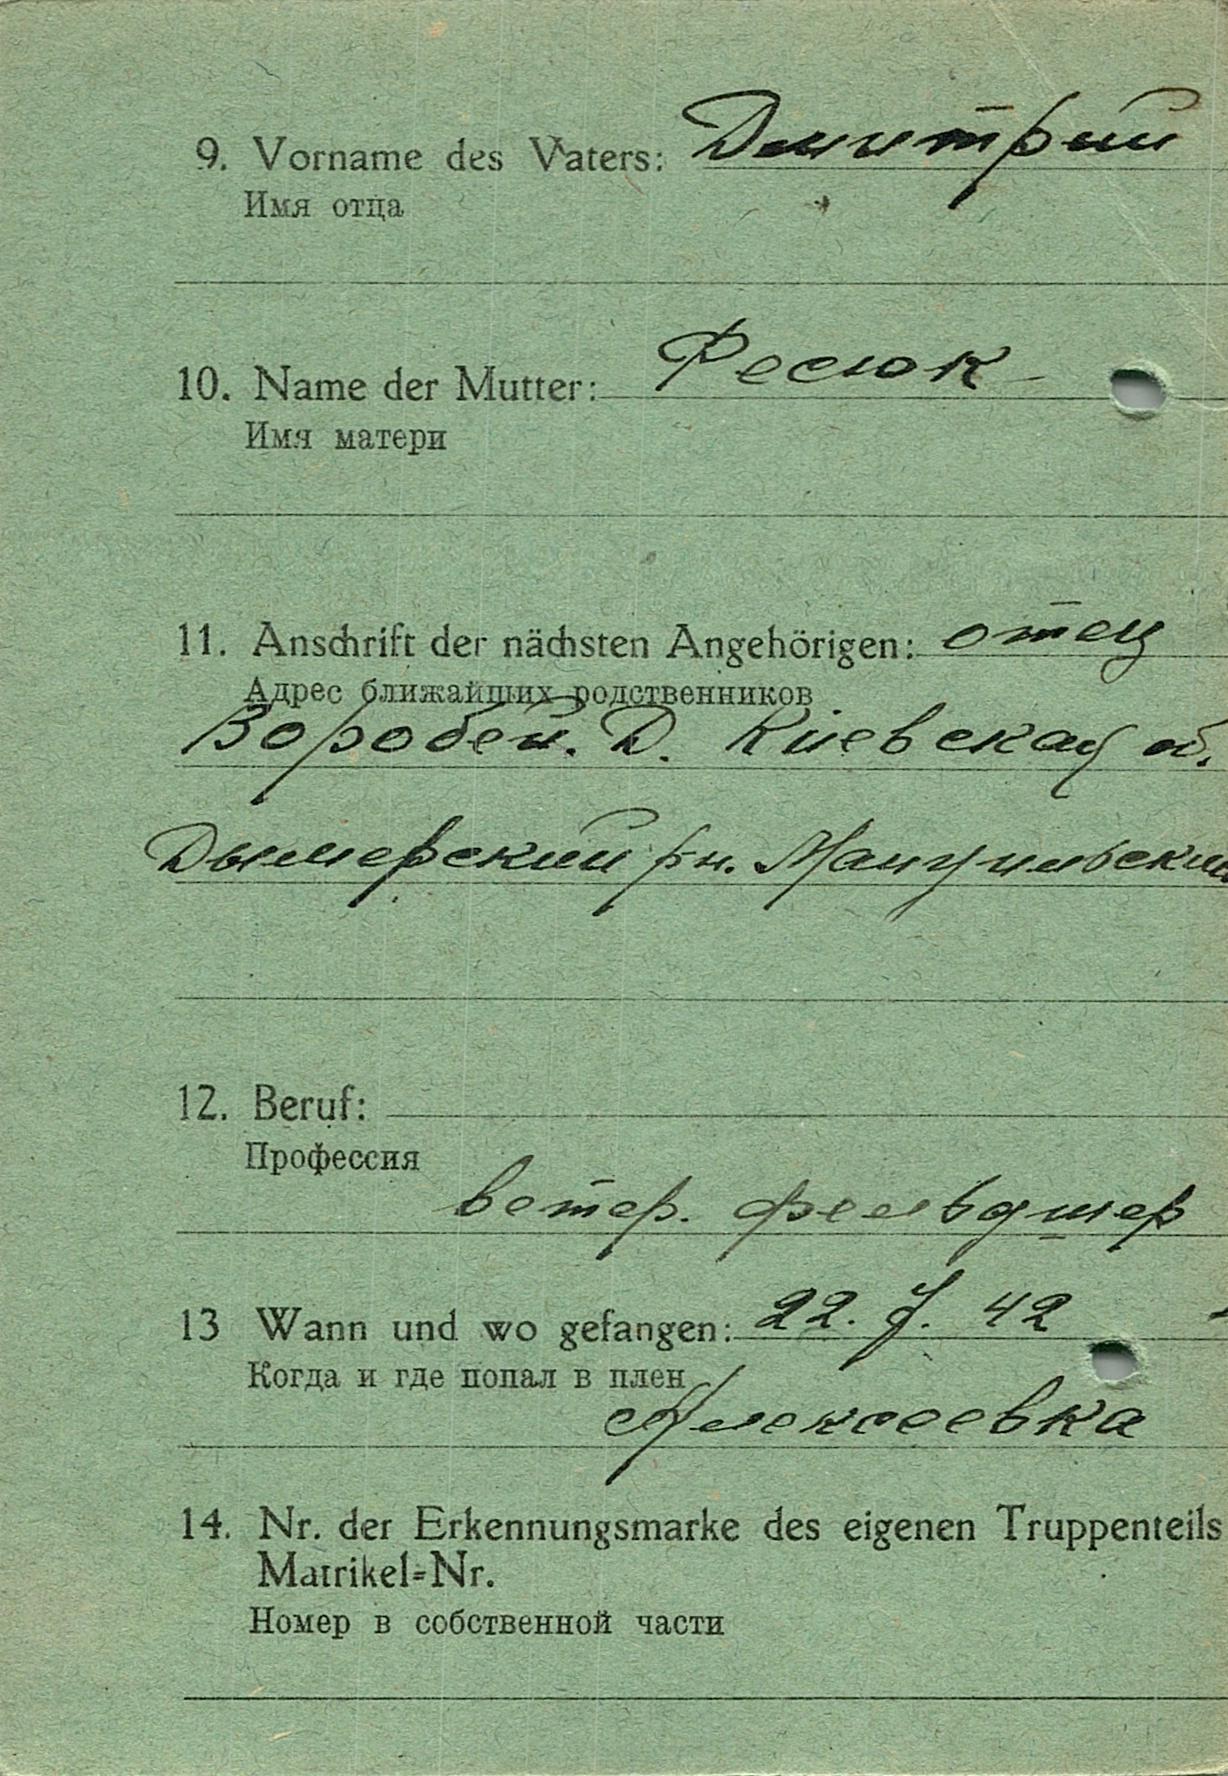 9. Vorname des Vaters: Дмитрий
Имя отца
10. Name der Mutter: Фесюк
Имя матери
11. Anschrift der nächsten Angehörigen: отец
Адрес ближайших родственников
Воробей. Д. Киевская о.
Дымерский рн.
12. Beruf:
Профессия
ветер. фельдшер
13 Wann und wo gefangen: 22. 7. 42
Когда и где попал в плен
Алексеевка
14. Nr. der Erkennungsmarke des eigenen Truppenteils
Matrikel=Nr.
Номер в собственной части